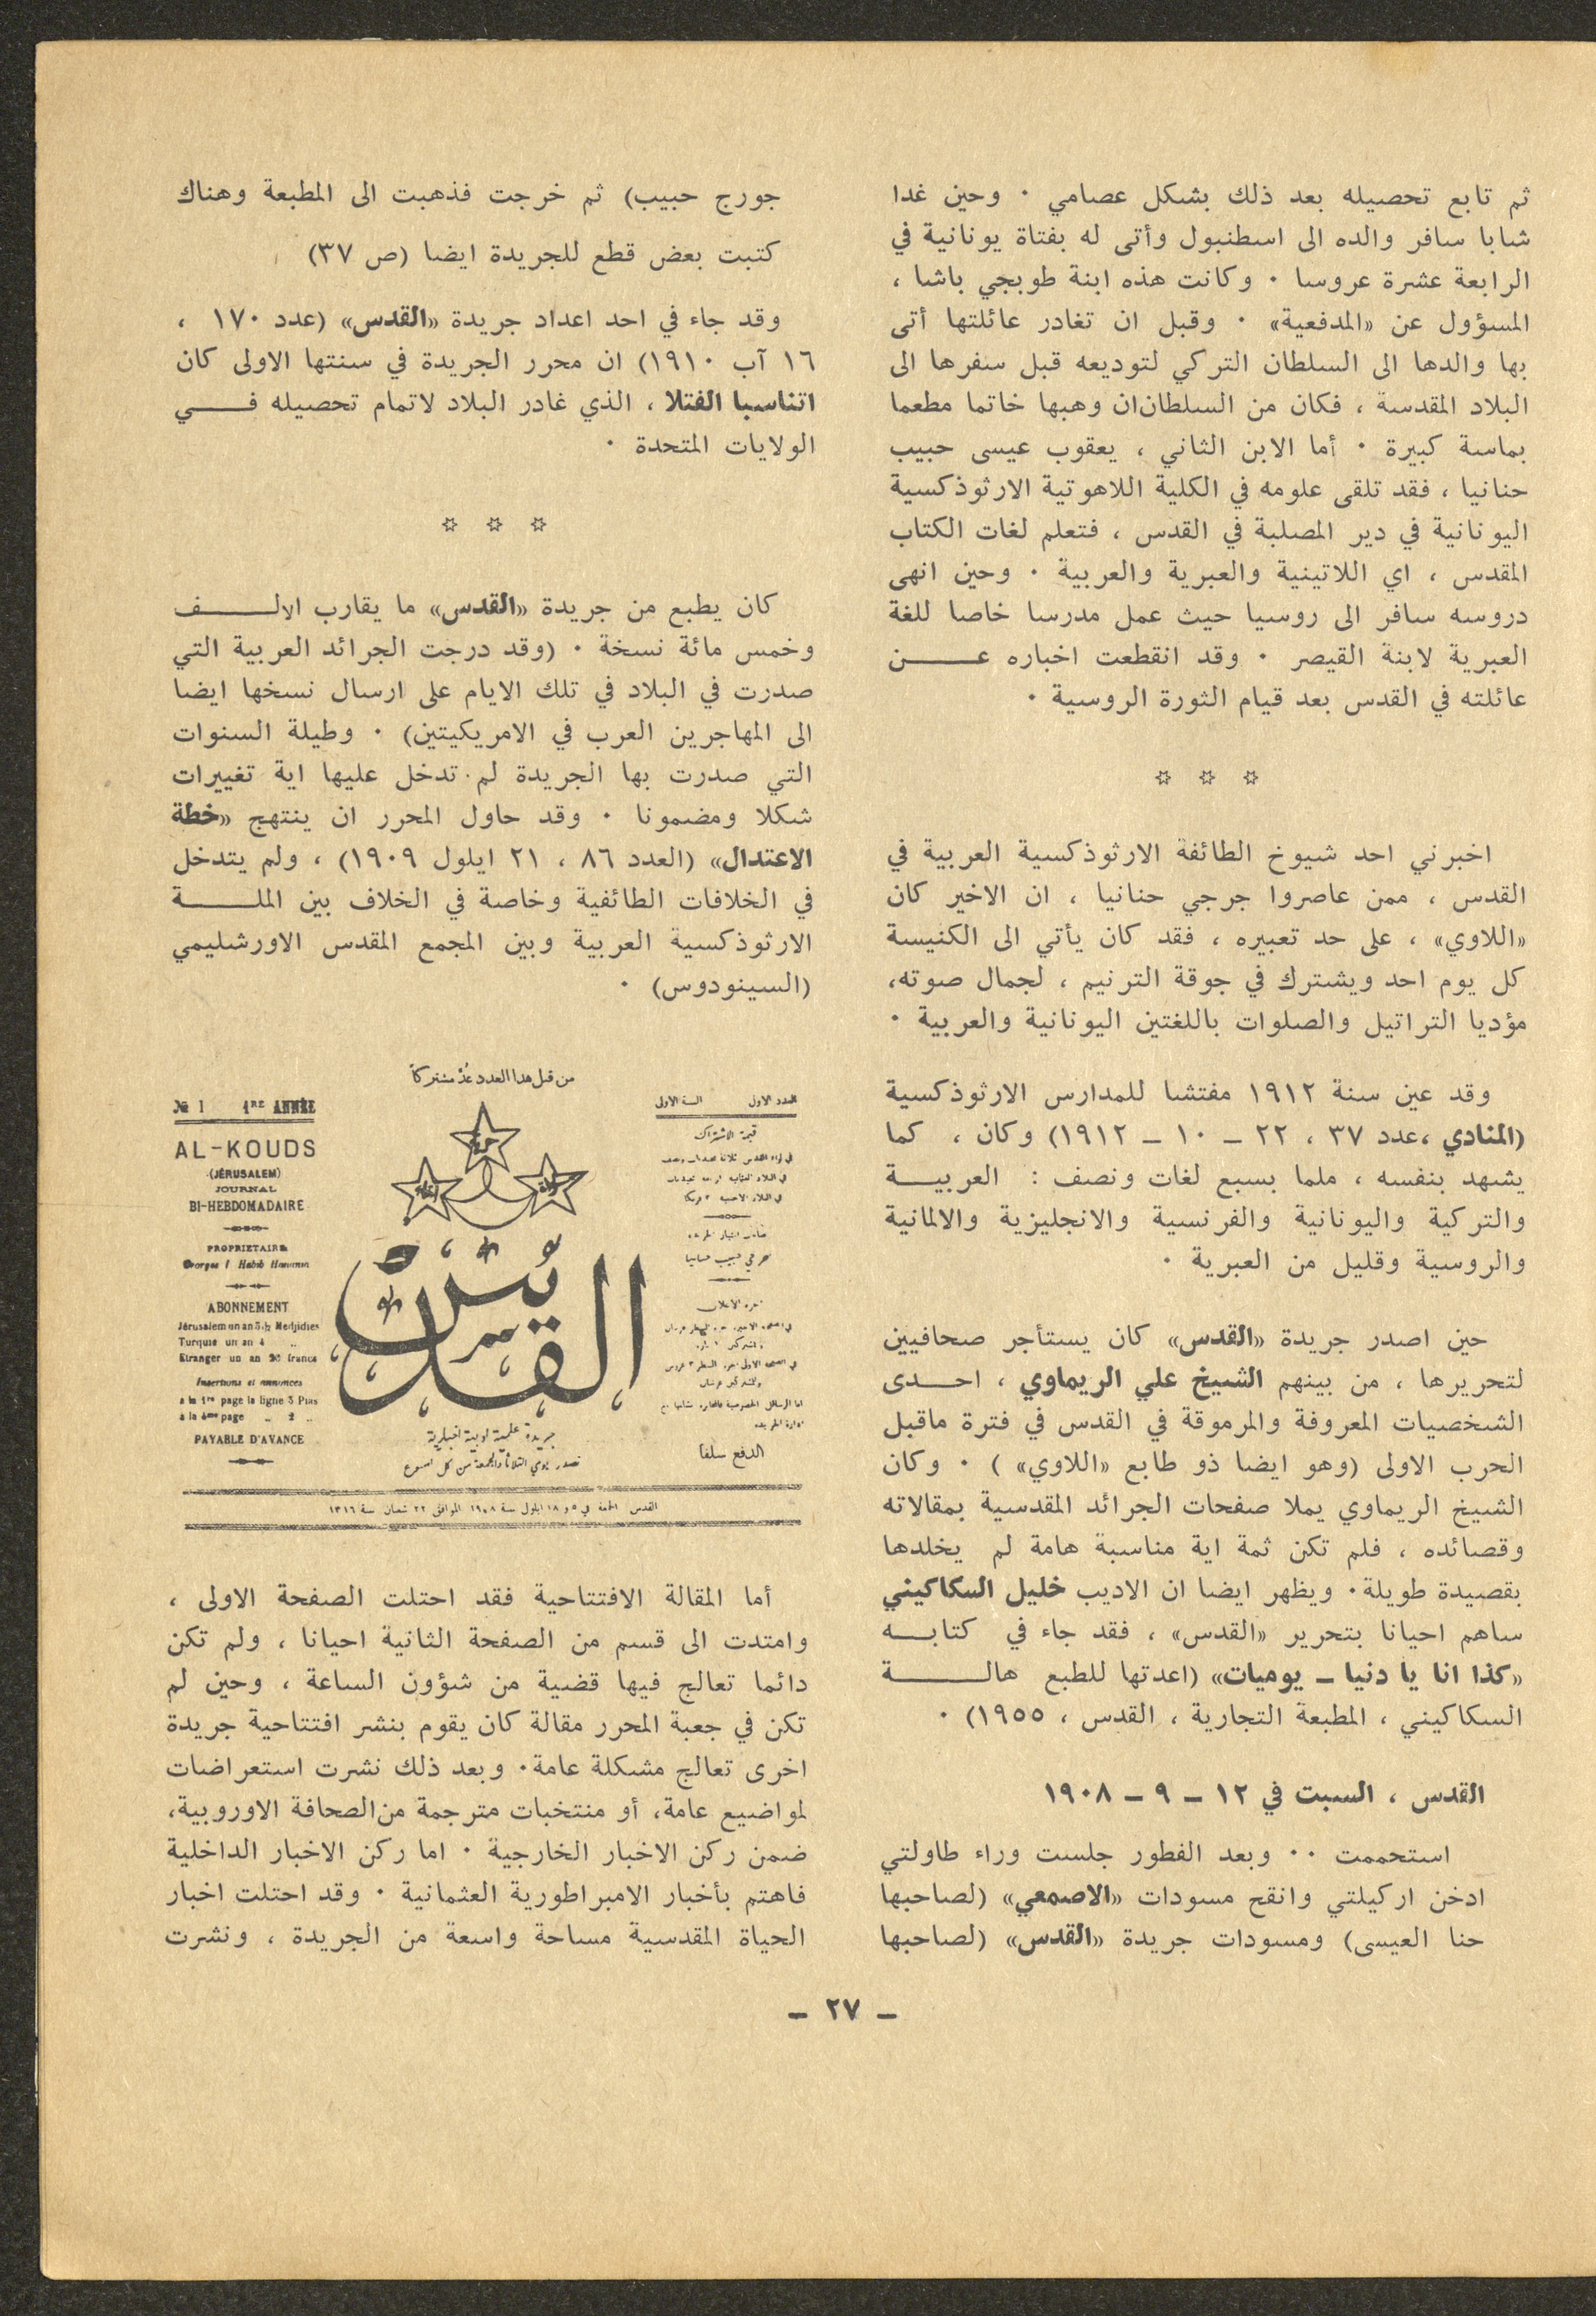 ثم تابع تحصيله بعد ذلك بشكل عصامي ٠ وحين غدا
شابا سافر والده الى اسطنبول وأتى له بفتاة يونانية في
الرابعة عشرة عروسا ٠ وكانت هذه ابنة طوبجي باشا ،
المسؤول عن «المدفعية» ٠ وقبل ان تغادر عائلتها أتى
بها والدها الى السلطان التركي لتوديعه قبل سفرها الى
البلاد المقدسة ، فكان من السلطان ان وهبها خاتما مطعما
بماسة كبيرة ٠ أما الابن الثاني ، يعقوب عيسى حبيب
حنانيا ، فقد تلقى علومه في الكلية اللاهوتية الارثوذكسية
اليونانية في دير المصلبة في القدس ، فتعلم لغات الكتاب
المقدس ، اي اللاتينية والعبرية والعربية ٠ وحين انهى
دروسه سافر الى روسيا حيث عمل مدرسا خاصا للغة
العبرية لابنة القيصر ٠ وقد انقطعت اخباره عـــن
عائلته في القدس بعد قيام الثورة الروسية ٠
✡ ✡ ✡
اخبرني احد شيوخ الطائفة الارثوذكسية العربية في
القدس ، ممن عاصروا جرجي حنانيا ، ان الاخير كان
«اللاوي» ، على حد تعبيره ، فقد كان يأتي الى الكنيسة
كل يوم احد ويشترك في جوقة الترنيم ، لجمال صوته،
مؤديا التراتيل والصلوات باللغتين اليونانية والعربية ٠
وقد عين سنة ١٩١٢ مفتشا للمدارس الارثوذكسية
(المنادي ،عدد ٣٧ ، ٢٢ ــ ١٠ ــ ١٩١٢) وكان ، كما
يشهد بنفسه ، ملما بسبع لغات ونصف : العربيـــة
والتركية واليونانية والفرنسية والانجليزية والالمانية
والروسية وقليل من العبرية ٠
حين اصدر جريدة «القدس» كان يستأجر صحافيين
لتحريرها ، من بينهم الشيخ علي الريماوي ، احـــدى
الشخصيات المعروفة والمرموقة في القدس في فترة ماقبل
الحرب الاولى (وهو ايضا ذو طابع «اللاوي» ) ٠ وكان
الشيخ الريماوي يملا صفحات الجرائد المقدسية بمقالاته
وقصائده ، فلم تكن ثمة اية مناسبة هامة لم يخلدها
بقصيدة طويلة٠ ويظهر ايضا ان الاديب خليل السكاكيني
ساهم احيانا بتحرير «القدس» ، فقد جاء في كتابـــه
«كذا انا يا دنيا ــ يوميات» (اعدتها للطبع هالـــة
السكاكيني ، المطبعة التجارية ، القدس ، ١٩٥٥) ٠
القدس ، السبت في ١٢ ــ ٩ ــ ١٩٠٨
استحممت ٠٠ وبعد الفطور جلست وراء طاولتي
ادخن اركيلتي وانقح مسودات «الاصمعي» (لصاحبها
حنا العيسى) ومسودات جريدة «القدس» (لصاحبها
جورج حبيب) ثم خرجت فذهبت الى المطبعة وهناك
كتبت بعض قطع للجريدة ايضا (ص ٣٧)
وقد جاء في احد اعداد جريدة «القدس» (عدد ١٧٠ ،
١٦ آب ١٩١٠) ان محرر الجريدة في سنتها الاولى كان
اتناسبا الفتلا ، الذي غادر البلاد لاتمام تحصيله فـــي
الولايات المتحدة ٠
✡ ✡ ✡
كان يطبع من جريدة «القدس» ما يقارب الالـــف
وخمس مائة نسخة ٠ (وقد درجت الجرائد العربية التي
صدرت في البلاد في تلك الايام على ارسال نسخها ايضا
الى المهاجرين العرب في الامريكيتين) ٠ وطيلة السنوات
التي صدرت بها الجريدة لم تدخل عليها اية تغييرات
شكلا ومضمونا ٠ وقد حاول المحرر ان ينتهج «خطة
الاعتدال» (العدد ٨٦ ، ٢١ ايلول ١٩٠٩) ، ولم يتدخل
في الخلافات الطائفية وخاصة في الخلاف بين الملـــة
الارثوذكسية العربية وبين المجمع المقدس الاورشليمي
(السينودوس) ٠
من قبل هذا العدد عُدّ مشتركاً
العدد الاول السنة الاولى
قيمة الاشتراك
الدفع سلفا
حرية
مساواة
اخاء
القدس
جريدة علمية ادبية اخبارية
تصدر يومي الثلاثاء والجمعة من كل اسبوع
№ 1 1RE ANNÉE
AL-KOUDS
(JÉRUSALEM)
JOURNAL
BI-HEBDOMADAIRE
PROPRIETAIRE
Georges I Habib Hanania
ABONNEMENT
Jérusalem un an 3 ½ Medjidies
Turquie un an 4 „
Etranger un an 20 francs
Insertions et annonces
à la 1re page la ligne 3 Pias
à la 4me page „ 2 „
PAYABLE D'AVANCE
القدس الجمعة في ٥ و ١٨ ايلول سنة ١٩٠٨ الموافق ٢٢ شعبان سنة ١٣٢٦
أما المقالة الافتتاحية فقد احتلت الصفحة الاولى ،
وامتدت الى قسم من الصفحة الثانية احيانا ، ولم تكن
دائما تعالج فيها قضية من شؤون الساعة ، وحين لم
تكن في جعبة المحرر مقالة كان يقوم بنشر افتتاحية جريدة
اخرى تعالج مشكلة عامة٠ وبعد ذلك نشرت استعراضات
لمواضيع عامة، أو منتخبات مترجمة من الصحافة الاوروبية،
ضمن ركن الاخبار الخارجية ٠ اما ركن الاخبار الداخلية
فاهتم بأخبار الامبراطورية العثمانية ٠ وقد احتلت اخبار
الحياة المقدسية مساحة واسعة من الجريدة ، ونشرت
ــ ٢٧ ــ